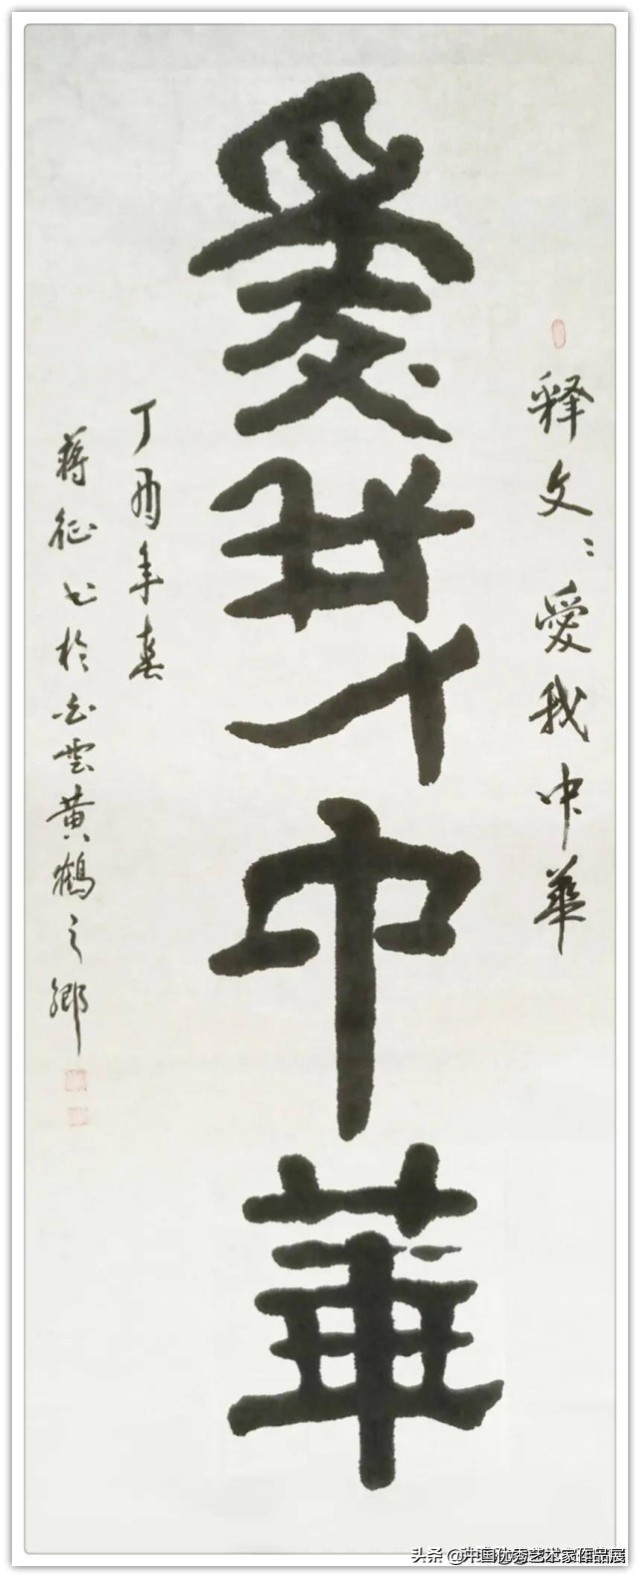 释文：愛我中華
愛我中華
丁酉年春
蒋征书於白雲黄鶴之鄉
头条 @中国优秀艺术家作品展